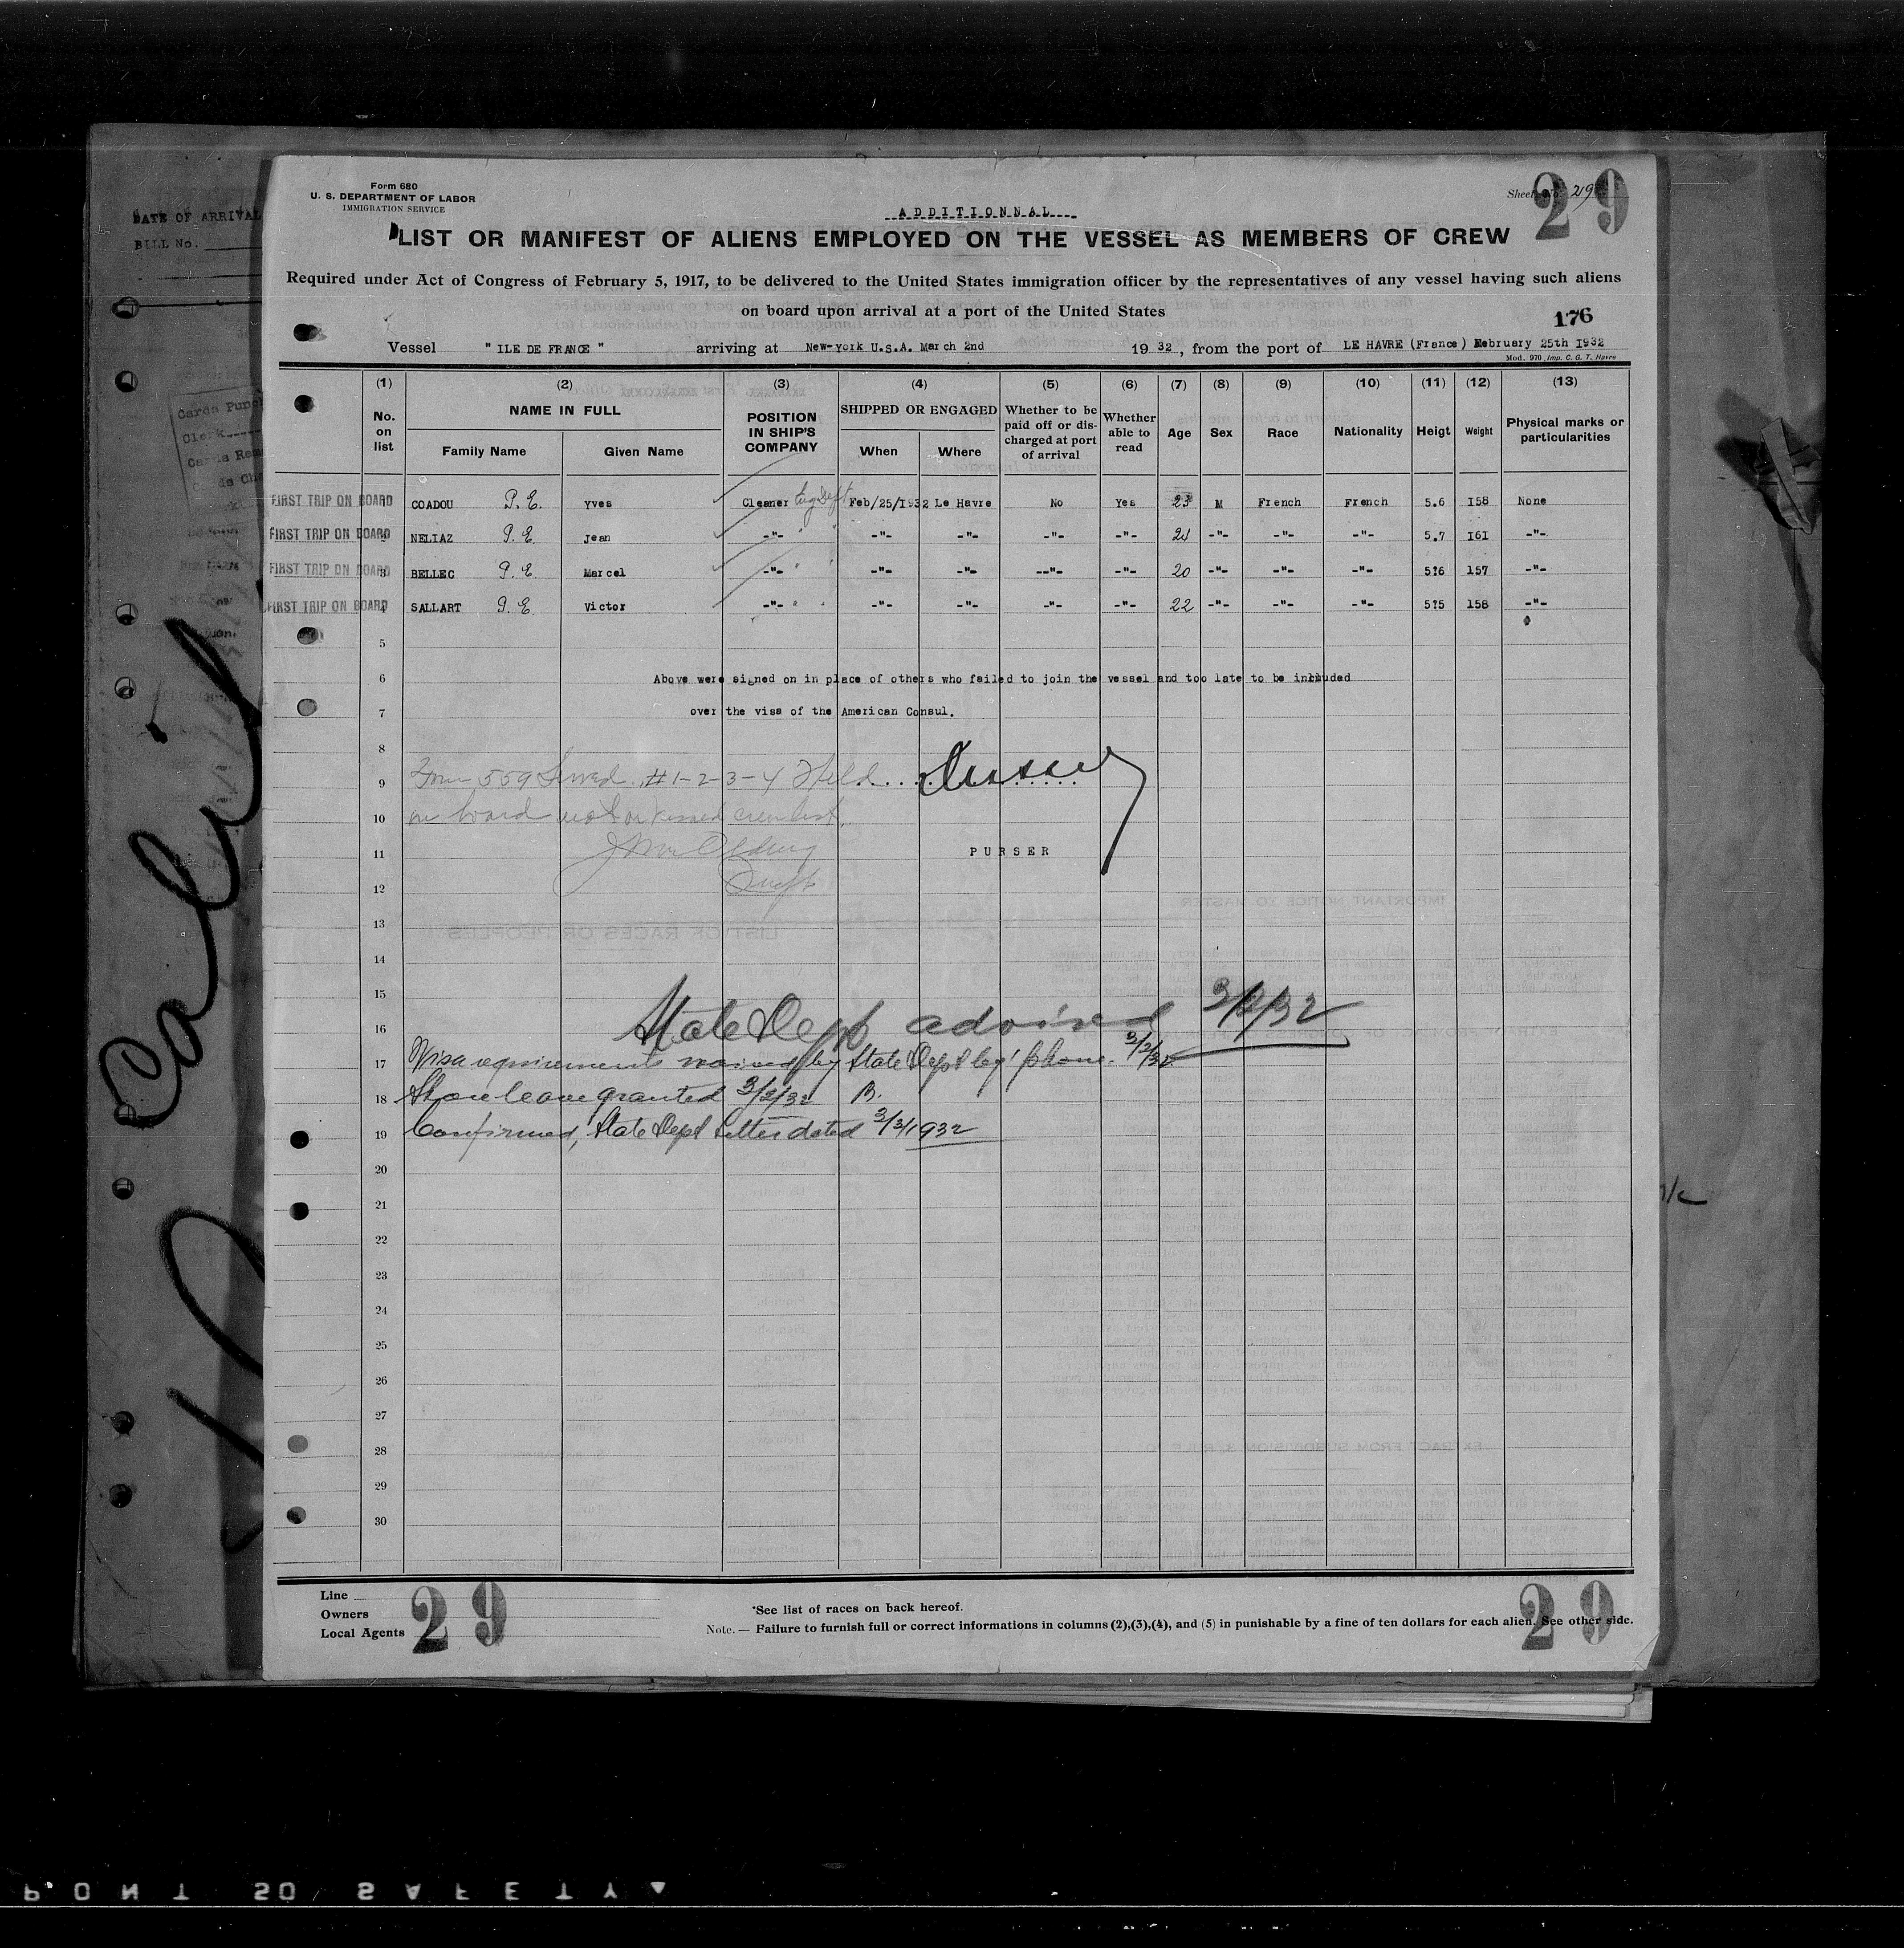 Form 680
U. S. DEPARTMENT OF LABOR
IMMIGRATION SERVICE
Sheet No. 29
29
ADDITIONNAL
LIST OR MANIFEST OF ALIENS EMPLOYED ON THE VESSEL AS MEMBERS OF CREW
Required under Act of Congress of February 5, 1917, to be delivered to the United States immigration officer by the representatives of any vessel having such aliens
on board upon arrival at a port of the United States
176
Vessel " ILE DE FRANCE " arriving at New-York U.S.A. March 2nd 19 32, from the port of LE HAVRE (France) February 25th 1932
Mod. 970 Imp. C. G. T. Havre
(1) (2) (3) (4) (5) (6) (7) (8) (9) (10) (11) (12) (13)
No. on list NAME IN FULL Family Name Given Name POSITION IN SHIP'S COMPANY SHIPPED OR ENGAGED When Where Whether to be paid off or discharged at port of arrival Whether able to read Age Sex Race Nationality Heigt Weight Physical marks or particularities
FIRST TRIP ON BOARD 1 COADOU P.E. Yves Cleaner Eng Dept Feb/25/1932 Le Havre No Yes 23 M French French 5.6 158 None
FIRST TRIP ON BOARD 2 NELIAZ P.E. Jean -"- -"- -"- -"- -"- 24 -"- -"- -"- 5.7 161 -"-
FIRST TRIP ON BOARD 3 BELLEC P.E. Marcel -"- -"- -"- --"- -"- 20 -"- -"- -"- 5?6 157 -"-
FIRST TRIP ON BOARD 4 SALLART P.E. Victor -"- -"- -"- -"- -"- 22 -"- -"- -"- 5?5 158 -"-
5
6 Above were signed on in place of others who failed to join the vessel and too late to be included
7 over the visa of the American Consul.
8
9 Form 559 Served. #1-2-3-4 Held
10 on board not on vised crew list.
11 PURSER
12
13
14
15 State Dept advised 3/2/32
16
17 Visa requirements waived by State Dept by 'phone. 3/2/32
18 Shore leave granted 3/2/32 B.
19 Confirmed, State Dept letter dated 3/3/1932
20
21
22
23
24
25
26
27
28
29
30
Line
Owners
Local Agents
29
*See list of races on back hereof.
Note. — Failure to furnish full or correct informations in columns (2),(3),(4), and (5) in punishable by a fine of ten dollars for each alien. See other side.
29
DATE OF ARRIVAL
BILL No.
Cards Punch
Clerk
PONT 50 SAFETY